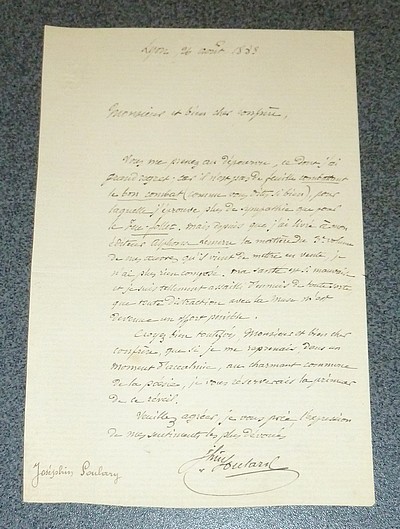 Lyon, 24 août 1883
Monsieur et bien cher confrère,
Vous me prenez au dépourvu, ce dont j'ai
grand regret. car il n'est pas de feuille combattant
le bon combat (comme vous dites si bien), pour
laquelle j'éprouve plus de sympathie que pour
le feu-follet. mais depuis que j'ai livré à mon
éditeur Alphonse Lemerre la matière du 3e volume
de mes œuvres qu'il vient de mettre en vente je
n'ai plus rien composé. ma santé est si mauvaise
et je suis tellement assailli d'ennuis de toute sorte
que toute distraction avec la Muse m'est
devenue un effort pénible.
Croyez bien toutefois, Monsieur et bien cher
confrère, que si je me reprenais, dans un
moment d'accalmie, au charmant commerce
de la poésie, je vous réserverais la primeur
de ce réveil.
Veuillez agréer, je vous prie l'expression
de mes sentiments les plus dévoués
Joséphin Soulary
Joséphin Soulary